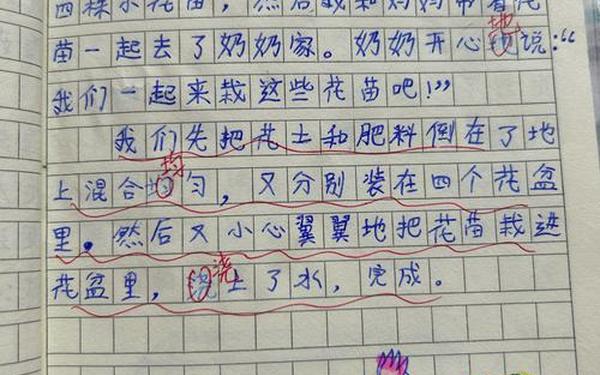 四棵小花苗，然后我和妈妈带着花
苗一起去了奶奶家。奶奶开心地说：“
我们一起来栽这些花苗吧！”
我们先把花土和肥料倒在了地
上混合均匀，又分别装在四个花盆
里。然后又小心翼翼地把花苗栽进
花盆里，浇上了水，完成。